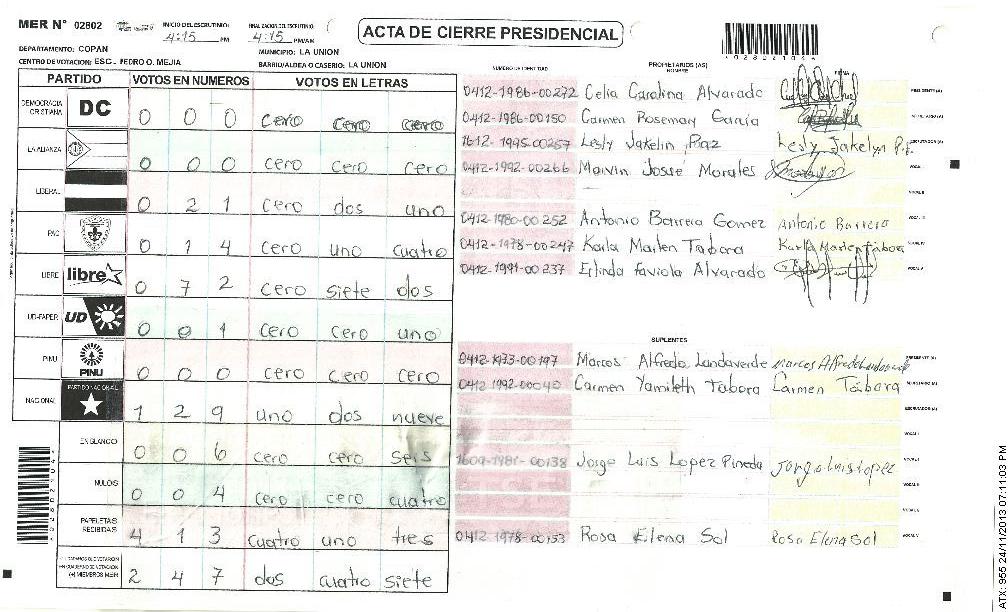 MER N° 02802
INICIO DEL ESCRUTINIO: 4:15 PM
FINALIZACION DEL ESCRUTINIO: 4:15 PM/AM
ACTA DE CIERRE PRESIDENCIAL
DEPARTAMENTO: COPAN
MUNICIPIO: LA UNION
CENTRO DE VOTACION: ESC. PEDRO O. MEJIA
BARRIO/ALDEA O CASERIO: LA UNION
PARTIDO VOTOS EN NUMEROS VOTOS EN LETRAS
DEMOCRACIA CRISTIANA DC 0 0 0 cero cero cero
LA ALIANZA 0 0 0 cero cero cero
LIBERAL 0 2 1 cero dos uno
PAC 0 1 4 cero uno cuatro
LIBRE libre 0 7 2 cero siete dos
UD-FAPER UD 0 0 1 cero cero uno
PINU PINU 0 0 0 cero cero cero
NACIONAL PARTIDO NACIONAL 1 2 9 uno dos nueve
EN BLANCO 0 0 6 cero cero seis
NULOS 0 0 4 cero cero cuatro
PAPELETAS RECIBIDAS 4 1 3 cuatro uno tres
(+) MIEMBROS MER 2 4 7 dos cuatro siete
NUMERO DE IDENTIDAD PROPIETARIOS (AS) NOMBRE FIRMA
0412-1986-00272 Celia Carolina Alvarado PRESIDENTE (A)
0412-1986-00150 Carmen Rosemary García SECRETARIO (A)
1612-1995-00257 Lesly Jakelin Paz Lesly Jakelyn P. ESCRUTADOR (A)
0412-1992-00266 Marvin Josué Morales VOCAL I
VOCAL II
0412-1980-00252 Antonio Barrera Gomez Antonio Barrera VOCAL III
0412-1978-00247 Karla Marlen Tabora Karla Marlen Tábora VOCAL IV
0412-1991-00237 Erlinda Faviola Alvarado VOCAL V
SUPLENTES
0412-1973-00197 Marcos Alfredo Landaverde Marcos Alfredo Landaverde PRESIDENTE (A)
0412-1992-00040 Carmen Yamileth Tabora Carmen Tábora SECRETARIO (A)
ESCRUTADOR (A)
VOCAL I
1609-1981-00138 Jorge Luis Lopez Pineda Jorge Luis Lopez VOCAL II
0412-1978-00153 Rosa Elena Sol Rosa Elena Sol VOCAL V
ATX: 955 24/11/2013 07:11:03 PM